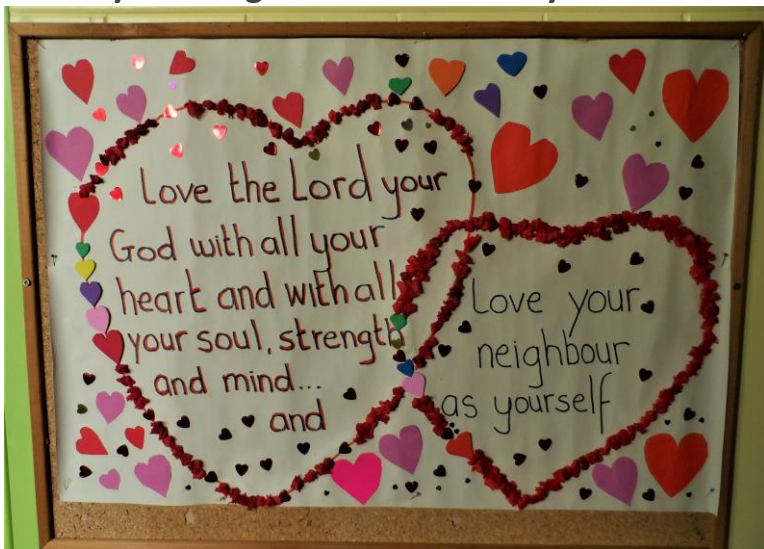 Love the Lord your
God with all your
heart and with all
your soul, strength
and mind...
and
Love your
neighbour
as yourself